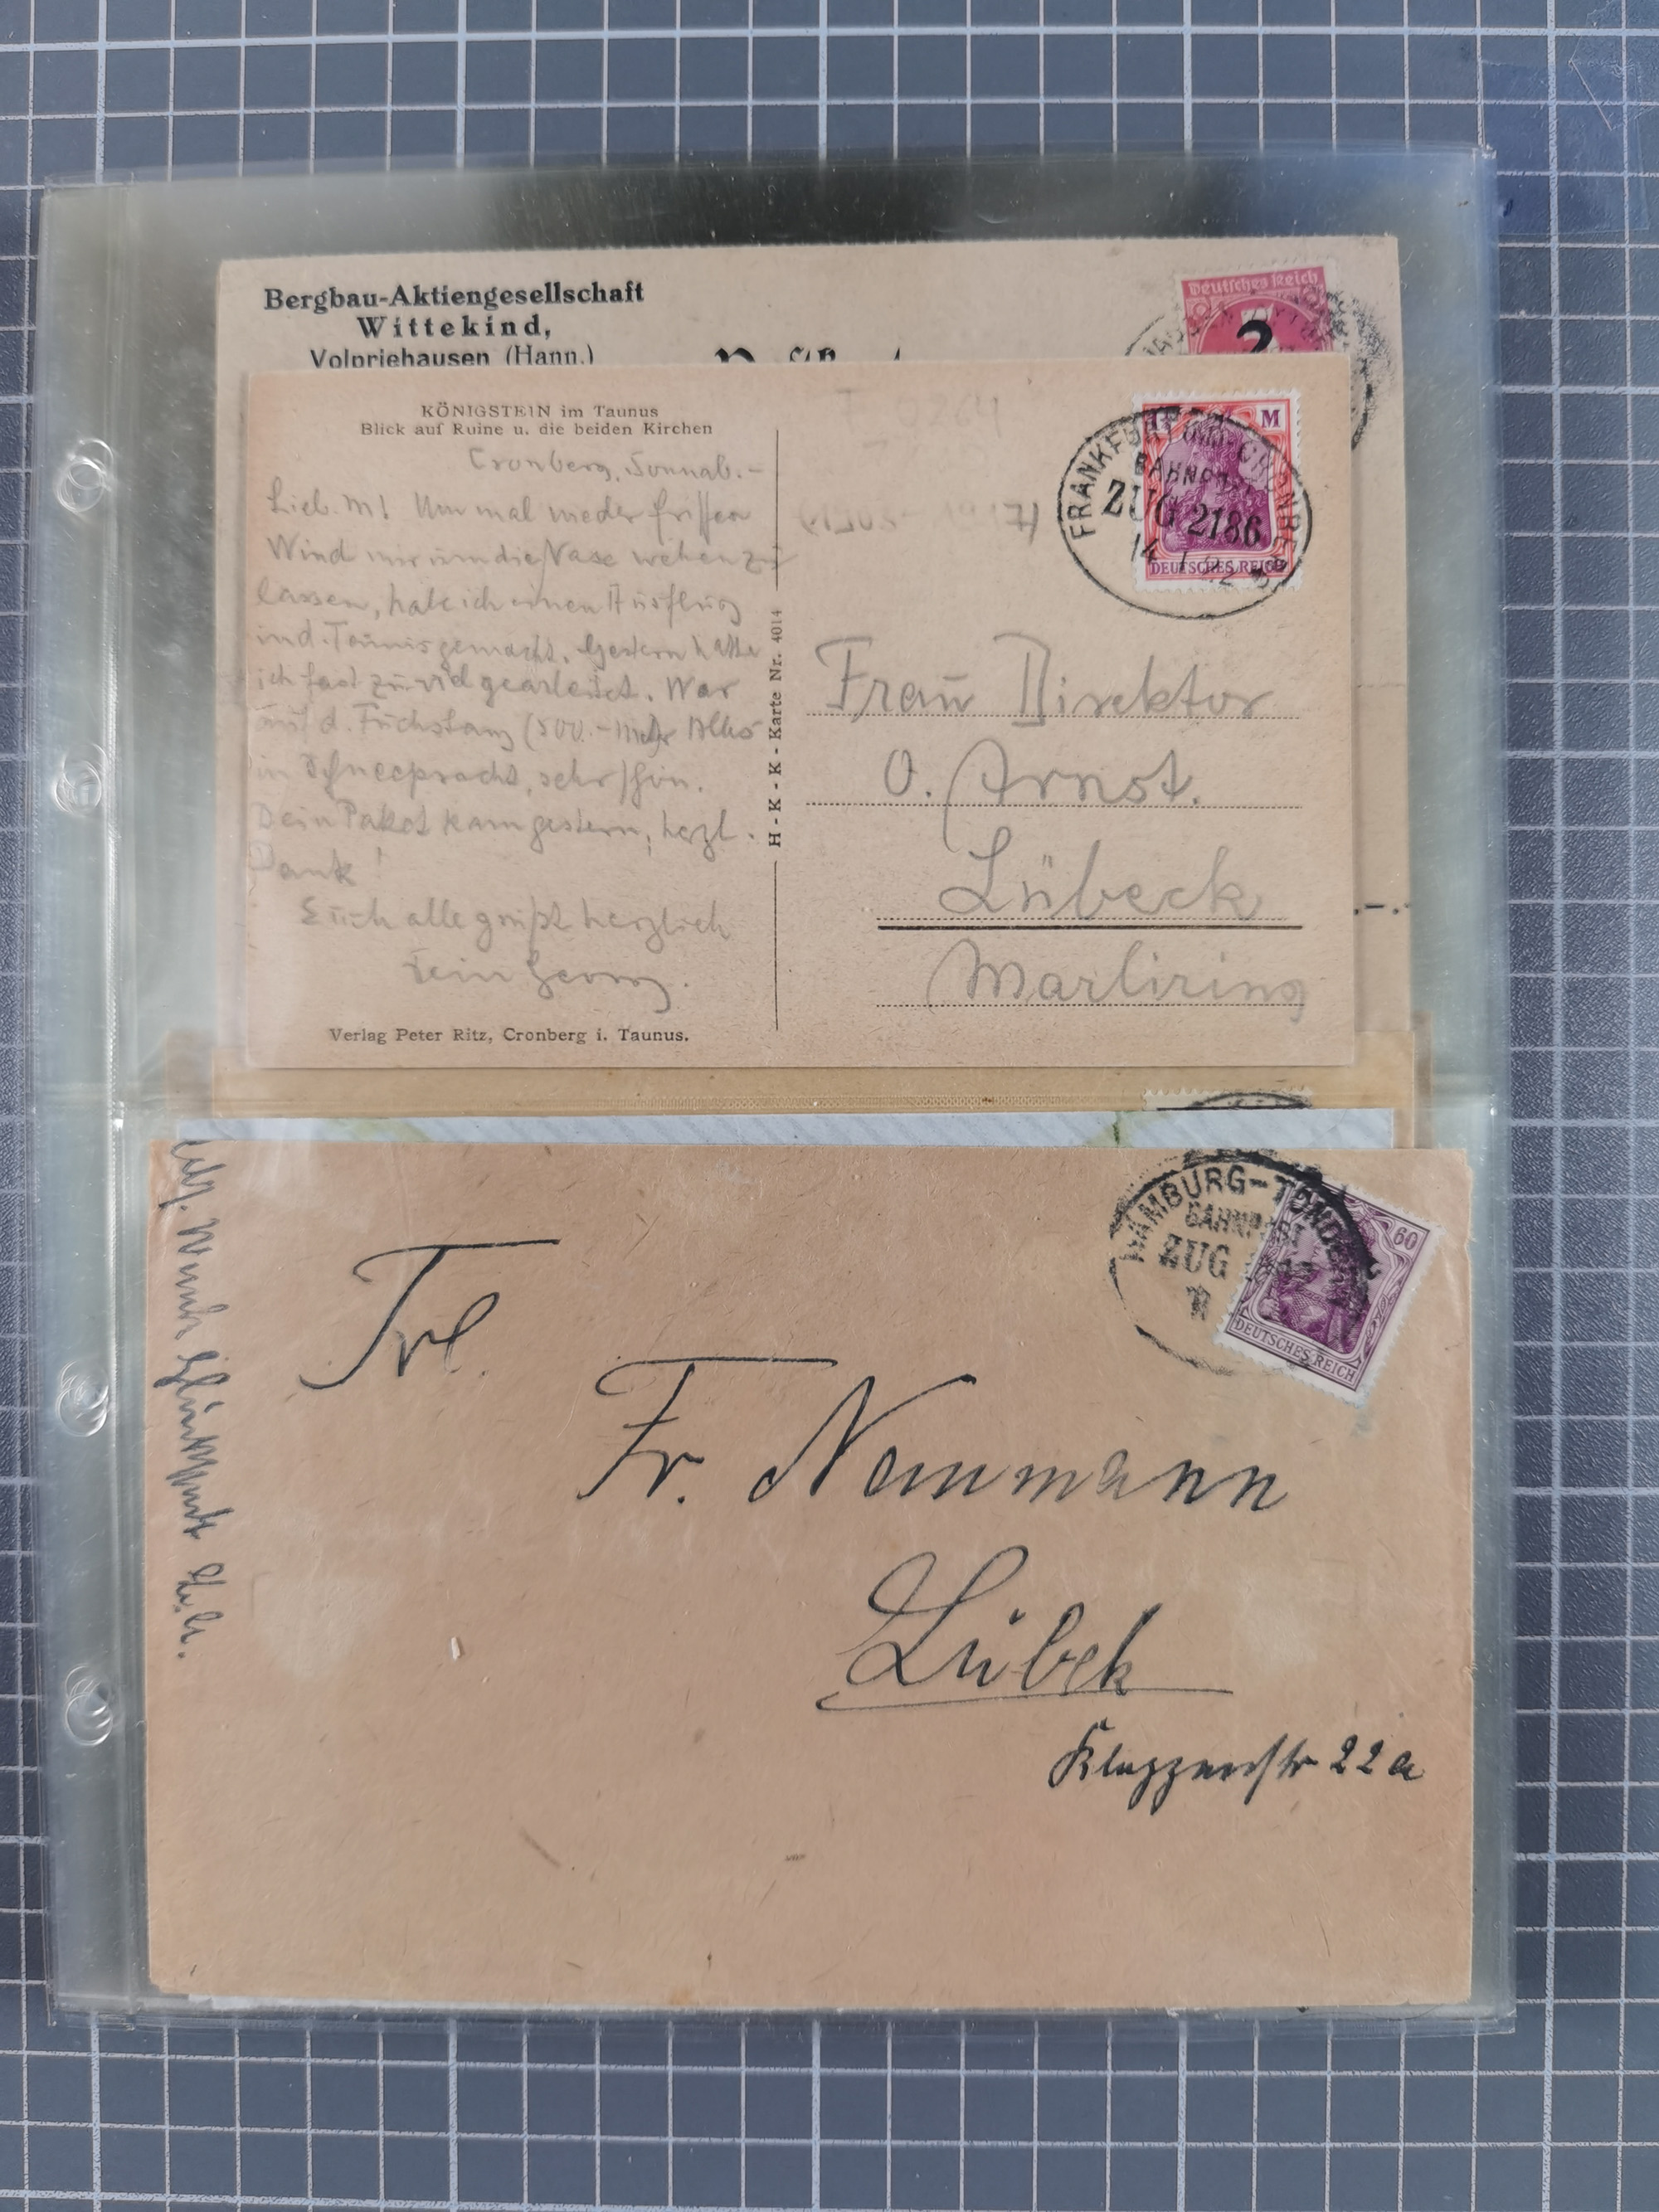 Bergbau-Aktiengesellschaft
Wittekind,
Volpriehausen (Hann.)
Deutsches Reich
2
KÖNIGSTEIN im Taunus
Blick auf Ruine u. die beiden Kirchen
Cronberg, Sonnab.-
Lieb. M! Um mal wieder frischen
Wind mir um die Nase wehen zu
lassen, habe ich einen Ausflug
ind. Taunus gemacht. Gestern hatte
ich fast zu viel gearbeitet. War
auf d. Fuchstanz (500.-
in Schneepracht, sehr schön.
Dein Paket kam gestern, herzl.
Dank!
Euch alle grüßt herzlich
Dein Georg.
Verlag Peter Ritz, Cronberg i. Taunus.
H-K-K-Karte Nr. 4014
M
DEUTSCHES REICH
FRANKFURT CRONBERG
BAHNPOST
ZUG 2186
Frau Direktor
O. Arnot.
Lübeck
Marliring
HAMBURG-TONDERN
BAHNPOST
ZUG
60
DEUTSCHES REICH
Frl.
Fr. Neumann
Lübek
22a